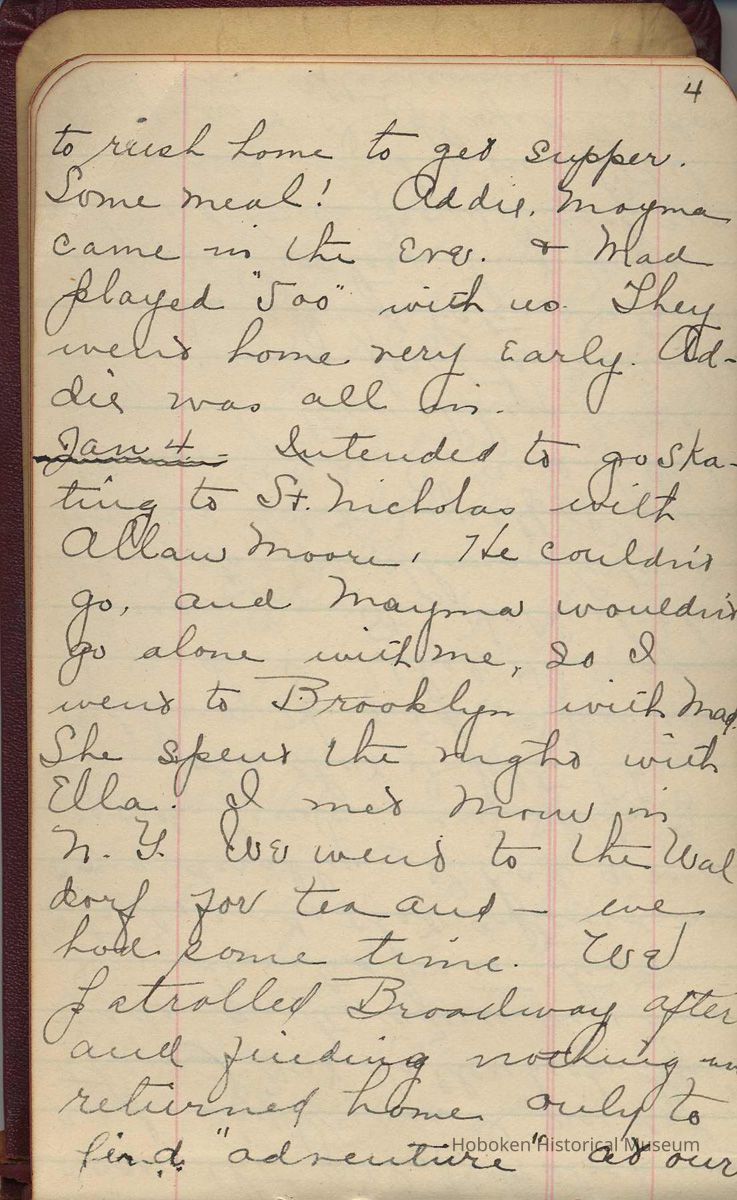 4
to rush home to get supper.
Some meal! Addie, Mayma
came in the Eve. & Mad
played "500" with us. They
went home very early. Ad-
die was all in.
Jan 4 - Intended to go ska-
ting to St. Nicholas with
Allan Moore, He couldn't
go, and Mayma wouldn't
go alone with me, so I
went to Brooklyn with Mad.
She spent the night with
Ella. I met in
N.Y. We went to the Wal
dorf for tea and - we
had some time. We
patrolled Broadway after
and finding nothing
returned home only to
find "adventure" at our
Hoboken Historical Museum